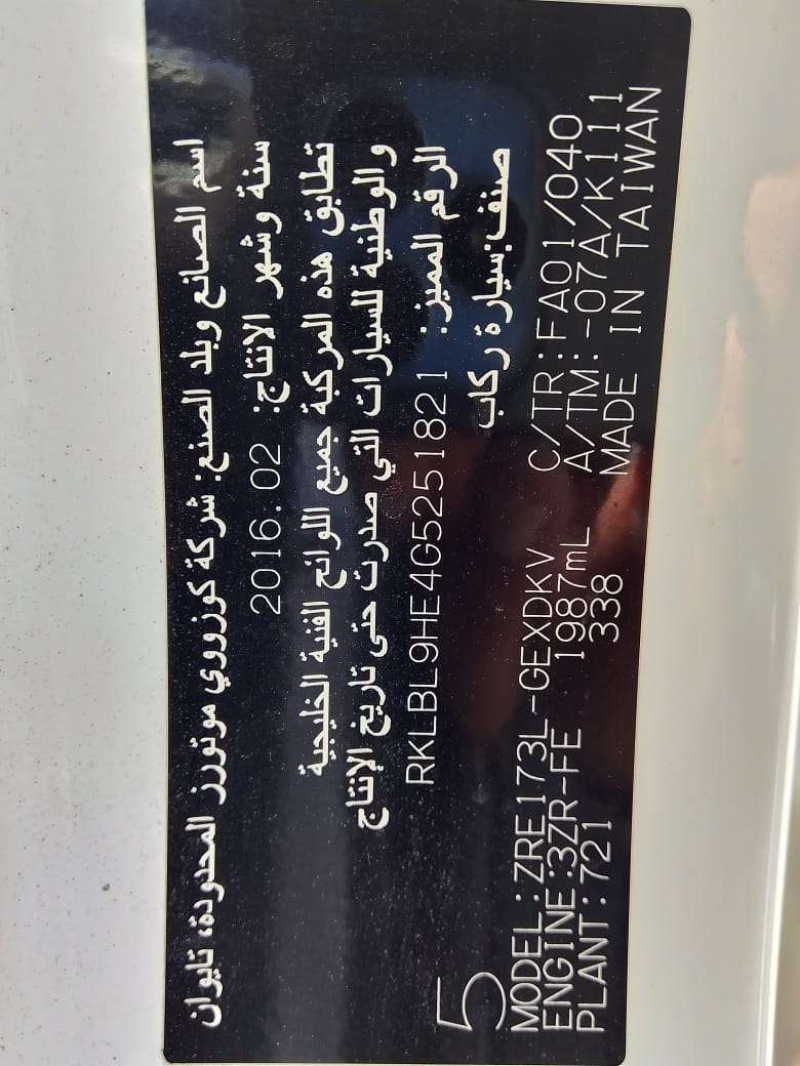 اسم الصانع وبلد الصنع: شركة كوزووي موتورز المحدودة، تايوان
سنة وشهر الانتاج: 2016.02
تطابق هذه المركبة جميع اللوائح الفنية الخليجية
والوطنية للسيارات التي صدرت حتى تاريخ الإنتاج
الرقم المميز: RKLBL9HE4G5251821
صنف:سيارة ركاب
5
MODEL:ZRE173L-GEXDKV C/TR:FA01/040
ENGINE:3ZR-FE 1987mL A/TM:-07A/K111
PLANT:721 338 MADE IN TAIWAN